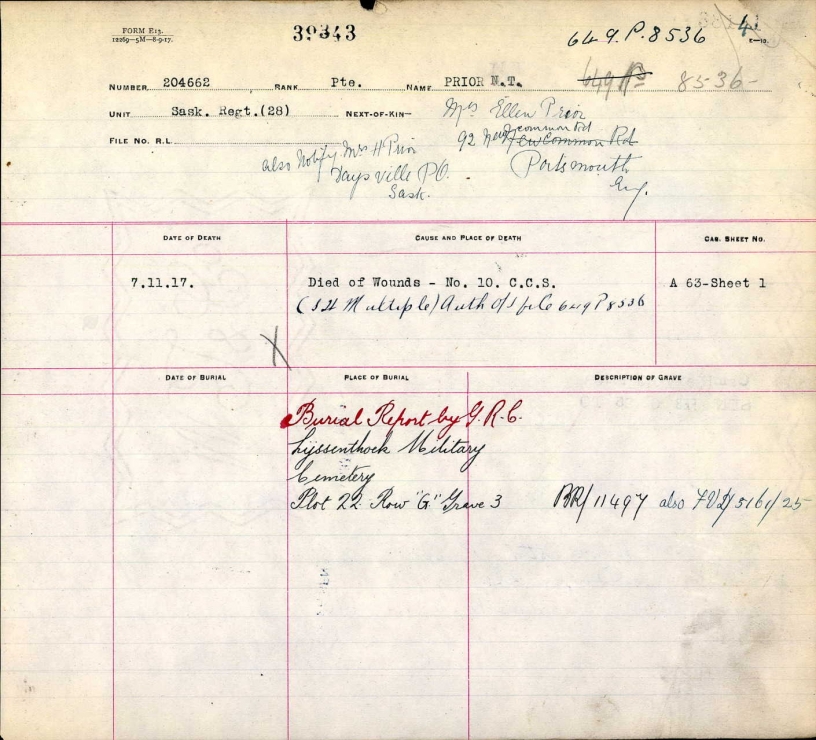 FORM E13.
12269—5M—8-9-17.
39343
649.P.8536
41
E—10.
NUMBER 204662 RANK Pte. NAME PRIOR N.T.
8536-
UNIT Sask. Regt.(28) NEXT-OF-KIN— Mrs Ellen Prior
FILE NO. R.L. 92 New common Rd New Common Rd
also Notify Mrs H Prior Portsmouth
Taysville P.O. Eng.
Sask.
DATE OF DEATH CAUSE AND PLACE OF DEATH CAS. SHEET NO.
7.11.17. Died of Wounds - No. 10. C.C.S. A 63-Sheet 1
(SW Multiple) Auth O/S file 649 P 8536
X
DATE OF BURIAL PLACE OF BURIAL DESCRIPTION OF GRAVE
Burial Report by G.R.C.
Lijssenthoek Military
Cemetery
Plot 22 Row "G" Grave 3 BR/11497 also FVD/5161/25